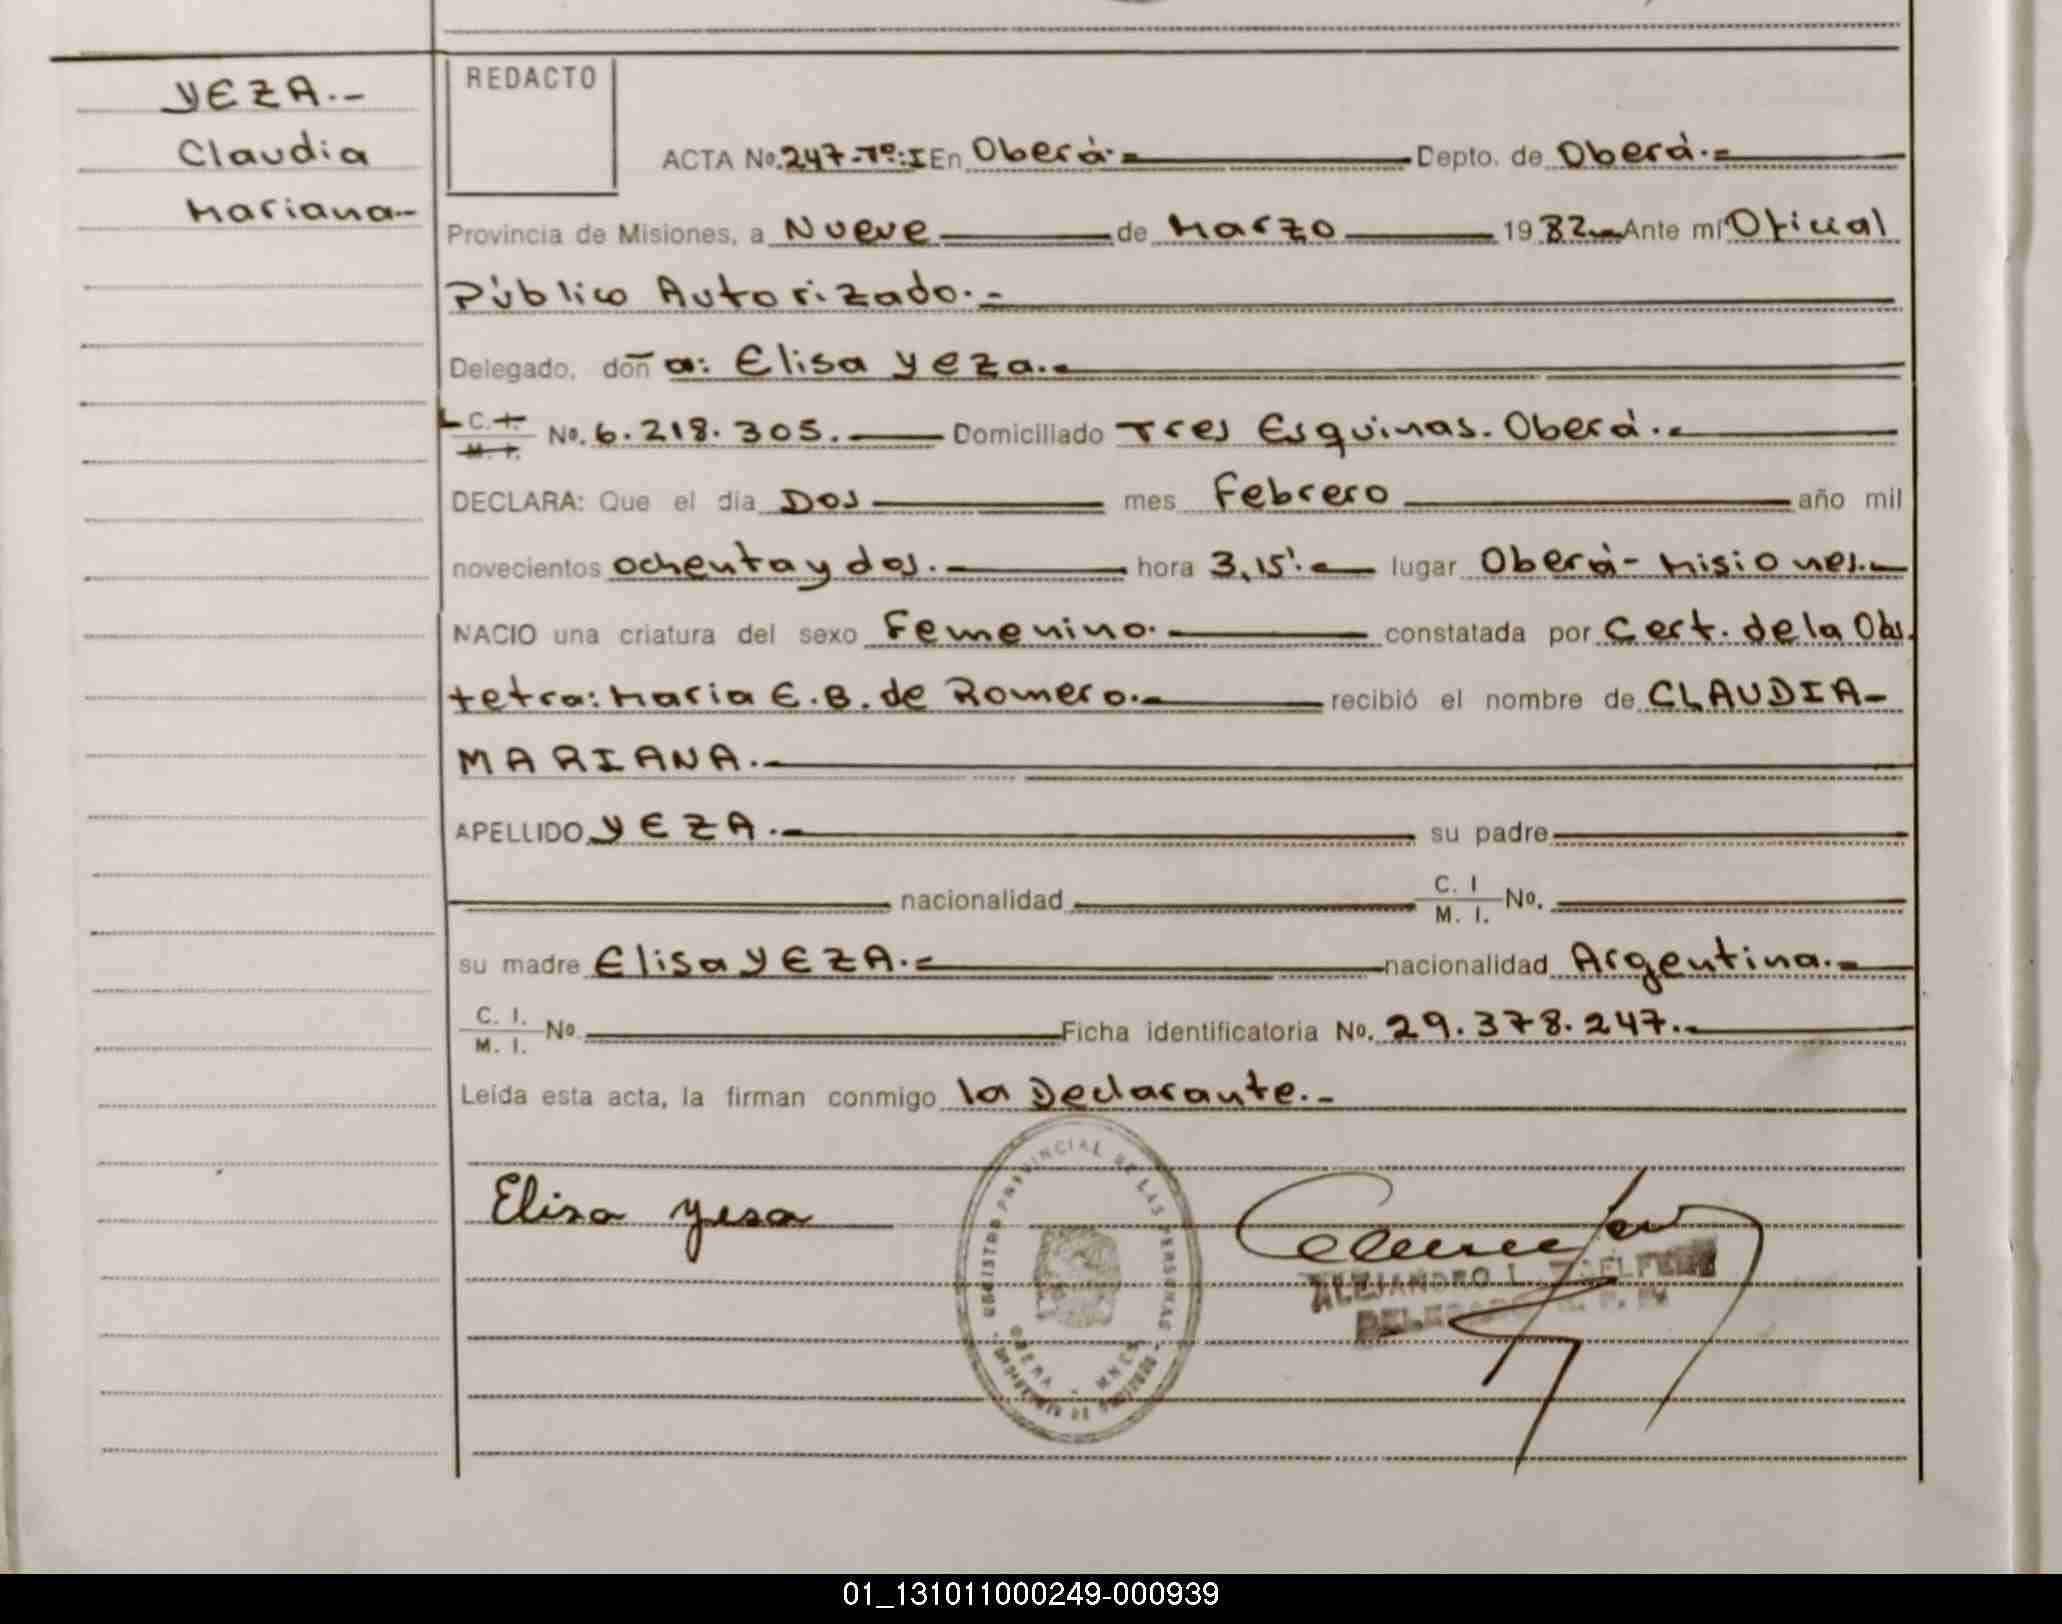 YEZA.-
Claudia
Mariana-
REDACTO
ACTA No. 247-Tº:I En Oberá.- Depto. de Oberá.-
Provincia de Misiones, a Nueve de Marzo 1982 Ante mí Oficial
Público Autorizado.-
Delegado, doña: Elisa Yeza.-
L C. I. M. I. No. 6.218.305.- Domiciliado Tres Esquinas. Oberá.-
DECLARA: Que el día Dos mes Febrero año mil
novecientos ochenta y dos.- hora 3,15'.- lugar Oberá- Misiones.-
NACIO una criatura del sexo Femenino.- constatada por Cert. de la Obs.
tetra: Maria E.B. de Romero.- recibió el nombre de CLAUDIA-
MARIANA.-
APELLIDO YEZA.- su padre
nacionalidad C. I M. I. No.
su madre Elisa YEZA.- nacionalidad Argentina.-
C. I. M. I. No. Ficha identificatoria No. 29.378.247.-
Leída esta acta, la firman conmigo la Declarante.-
Elisa Yesa
REGISTRO PROVINCIAL DE LAS PERSONAS
OBERA - MNES
ALEJANDRO L.
01_131011000249-000939